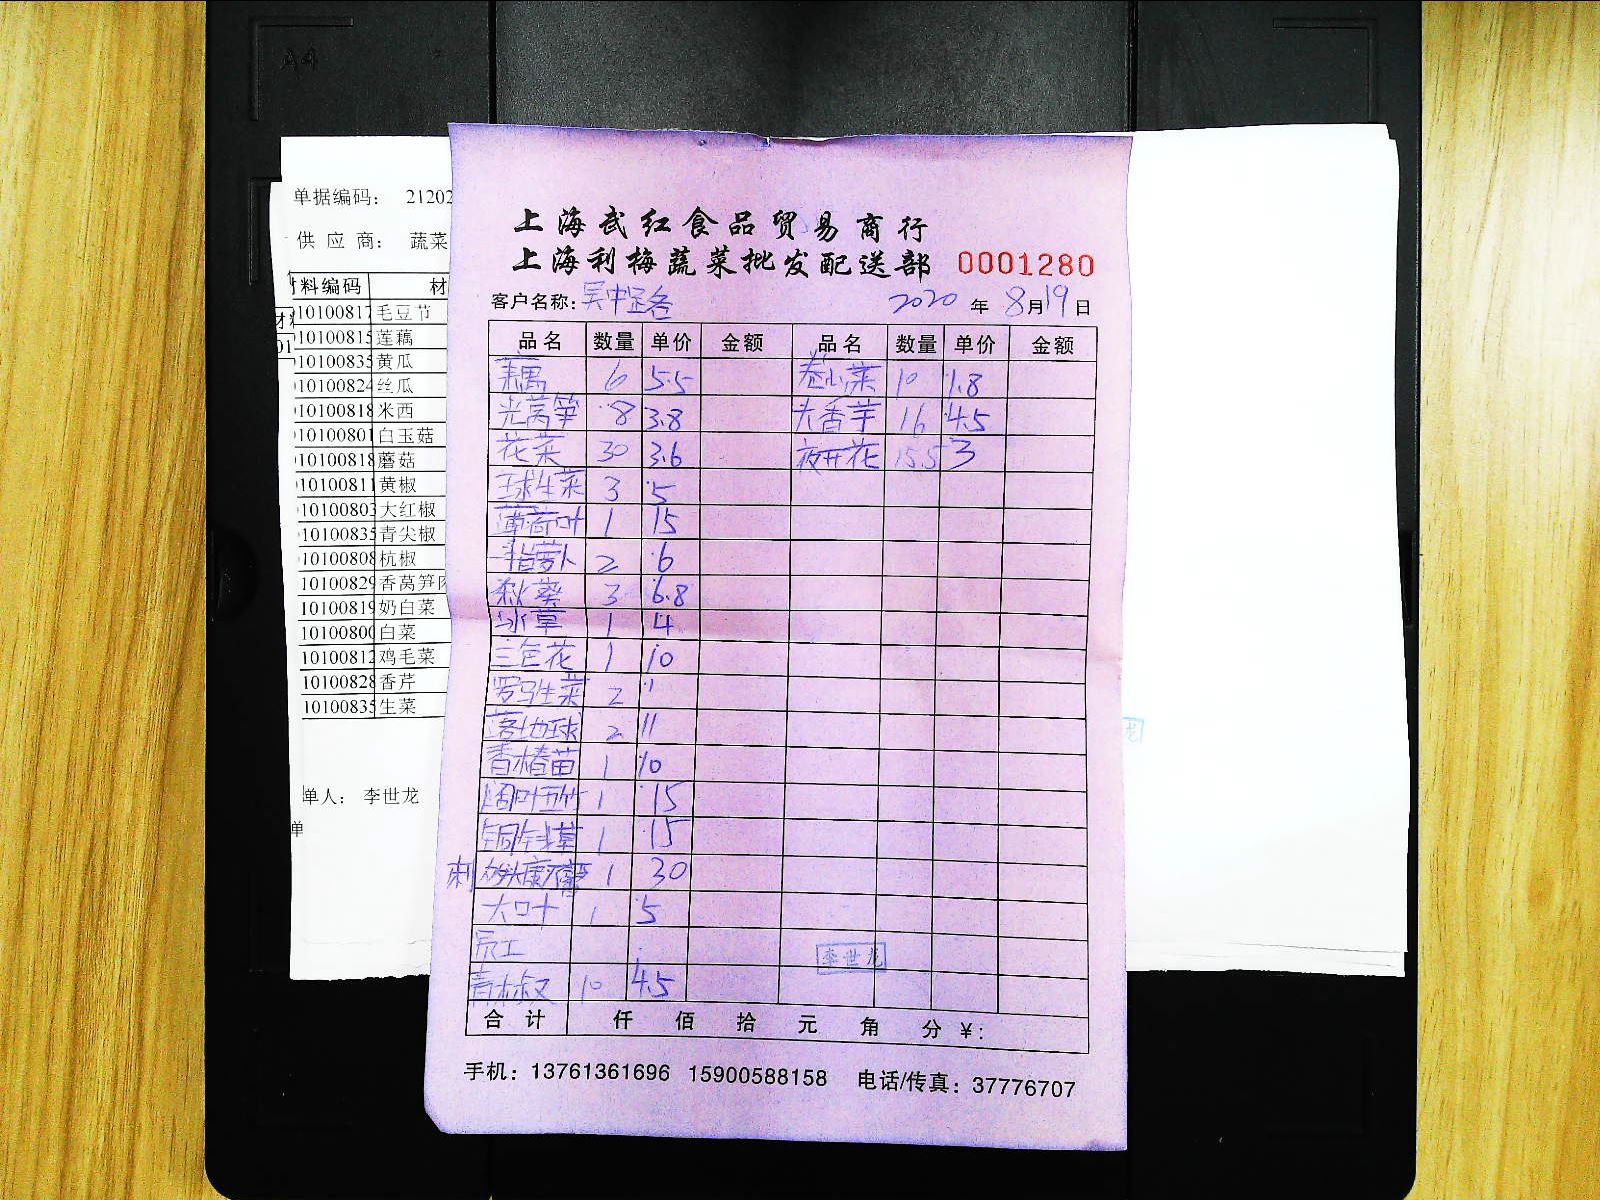 A4
单据编码： 21202
供 应 商： 蔬菜
料编码 材
10100817 毛豆节
10100815 莲藕
10100835 黄瓜
10100824 丝瓜
10100818 米西
10100801 白玉菇
10100818 蘑菇
10100811 黄椒
10100803 大红椒
10100835 青尖椒
10100808 杭椒
10100829 香莴笋
10100819 奶白菜
10100800 白菜
10100812 鸡毛菜
10100828 香芹
10100835 生菜
单人： 李世龙
单
上海武红食品贸易商行
上海利梅蔬菜批发配送部 0001280
客户名称：吴中路 2020 年 8 月 19 日
品名 数量 单价 金额 品名 数量 单价 金额
藕 6 5.5 卷心菜 10 1.8
光莴笋 8 3.8 大香芋 16 4.5
花菜 30 3.6 夜开花 15.5 3
球生菜 3 5
薄荷叶 1 15
手指萝卜 2 6
秋葵 3 6.8
冰草 1 4
三色花 1 10
罗马生菜 2
落地球 2 11
香椿苗 1 10
阔叶竹 1 15
铜钱草 1 15
刺 1 30
大叶 1 5
员工 李世龙
青椒 10 4.5
合 计 仟 佰 拾 元 角 分 ￥：
手机：13761361696 15900588158 电话/传真：37776707
龙